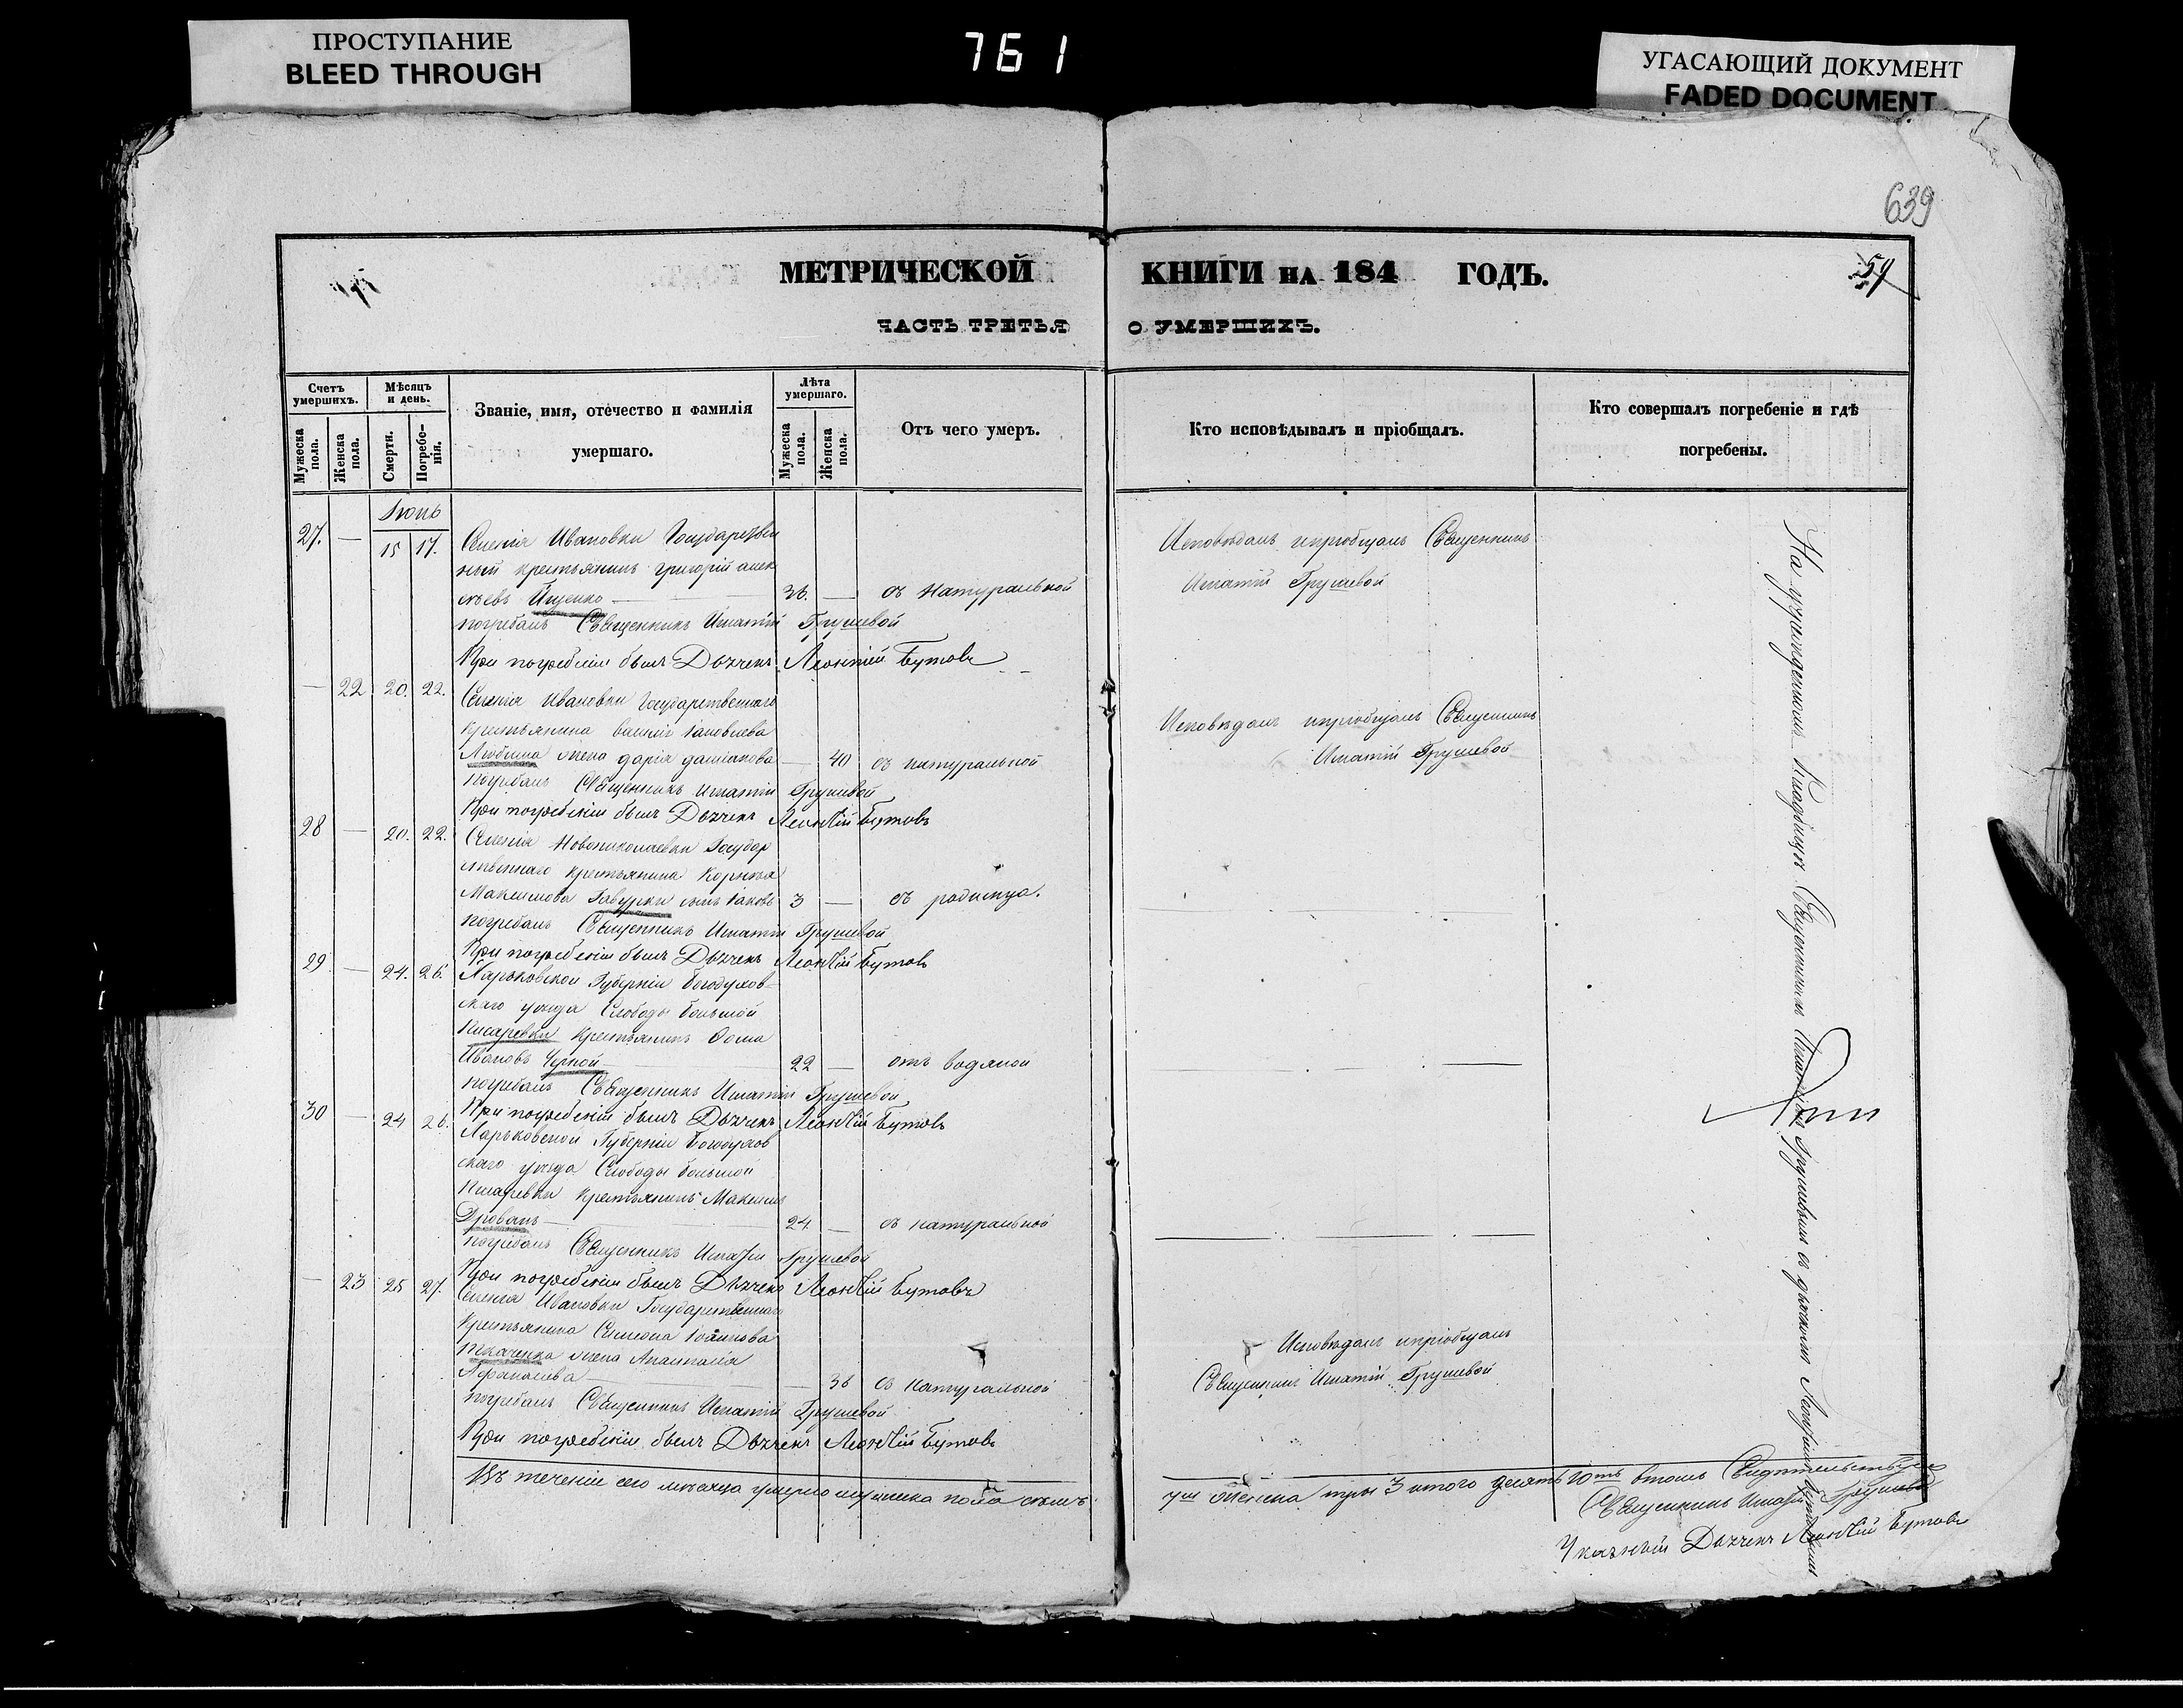 ПРОСТУПАНИЕ
BLEED THROUGH
761
УГАСАЮЩИЙ ДОКУМЕНТ
FADED DOCUMENT
639
МЕТРИЧЕСКОЙ КНИГИ на 184 ГОДЪ.
59
ЧАСТЬ ТРЕТЬЯ О УМЕРШИХЪ.
Счетъ умершихъ.
Мужеска пола.
Женска пола.
Мѣсяцъ и день.
Смерти.
Погребе-нія.
Званіе, имя, отечество и фамилія
умершаго.
Лѣта умершаго.
Мужеска пола.
Женска пола.
Отъ чего умеръ.
Кто исповѣдывалъ и пріобщалъ.
Кто совершалъ погребеніе и гдѣ
погребены.
Іюнь
27. — 15 17. Селенія Ивановки Государствен
ный крестьянинъ Григорій алек
сѣевъ Ищенко — 36. — съ натуральной
Исповѣдалъ ипріобщалъ Священникъ
Игнатій Грушевой
погребалъ Священникъ Игнатій Грушевой
При погребеніи былъ Дьячекъ Леонтій Бутовъ
— 22 20. 22. Селенія Ивановки Государственнаго
крестьянина
Любина жена дарія — 40 съ натуральной
Исповѣдалъ ипріобщалъ Священникъ
Игнатій Грушевой
погребалъ Священникъ Игнатій Грушевой
При погребеніи былъ Дьячекъ Леонтій Бутовъ
28 — 20. 22. Селенія Новониколаевки Государ
ственнаго крестьянина Корнѣя
Максимова сынъ Іаковъ 3 — съ родимца.
погребалъ Священникъ Игнатій Грушевой
При погребеніи былъ Дьячекъ Леонтій Бутовъ
29 — 24. 26. Харьковской Губерніи Богодухов
скаго уѣзда Слободы Большой
Писаревки крестьянинъ Фома
Ивановъ Черной — 22 — отъ водяной
погребалъ Священникъ Игнатій Грушевой
При погребеніи былъ Дьячекъ Леонтій Бутовъ
30 — 24 26. Харьковской Губерніи Богодухов
скаго уѣзда Слободы Большой
Писаревки крестьянинъ Максимъ
— 24 — съ натуральной
погребалъ Священникъ Игнатій Грушевой
При погребеніи былъ Дьячекъ Леонтій Бутовъ
— 23 25 27. Селенія Ивановки Государственнаго
крестьянина Симеона
Ткаченка жена Анастасія
Афанасіева — 36 съ натуральной
Исповѣдалъ ипріобщалъ
Священникъ Игнатій Грушевой
погребалъ Священникъ Игнатій Грушевой
При погребеніи былъ Дьячекъ Леонтій Бутовъ
Въ теченіи сего мѣсяца умерло мужеска пола семь
7ш женска три 3 итого десять 10ть втомъ Свидѣтельствуемъ
Священникъ Игнатій Грушевой
Указный Дьячекъ Леонтій Бутовъ
На учрежденномъ Кладбищѣ Священникомъ Игнатіемъ Грушевымъ съ дьячкомъ Леонтіемъ Бутовымъ